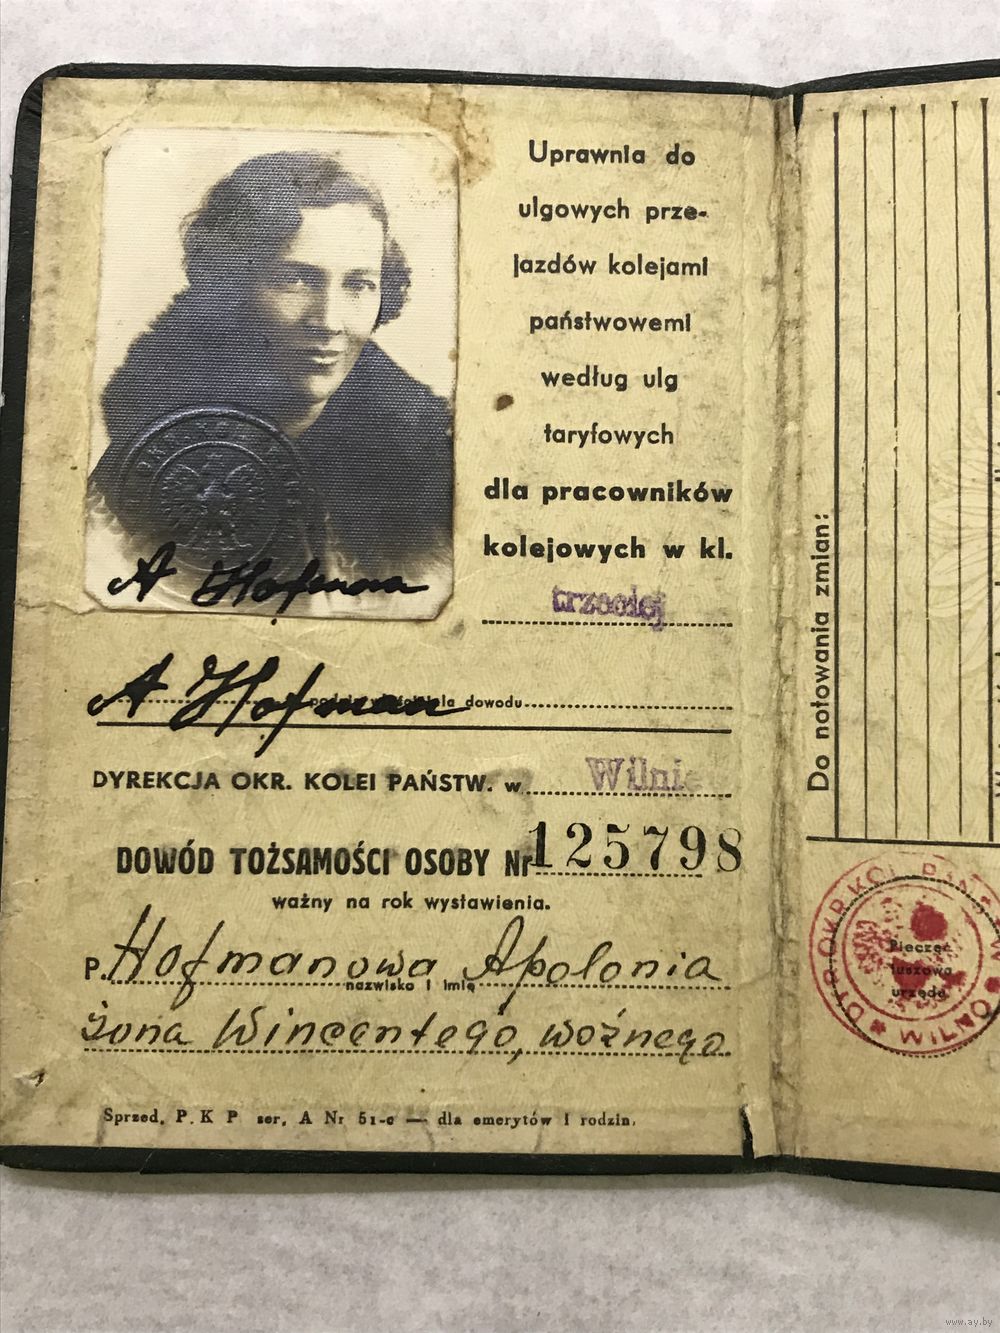 Uprawnia do
ulgowych prze-
jazdów kolejami
państwowemi
według ulg
taryfowych
dla pracowników
kolejowych w kl.
trzeciej
A Hofman
A Hofman
podpis właściciela dowodu
DYREKCJA OKR. KOLEI PAŃSTW. w Wilnie
DOWÓD TOŻSAMOŚCI OSOBY Nr 125798
ważny na rok wystawienia.
P. Hofmanowa Apolonia
nazwisko i imię
żona Wincentego, woźnego
Sprzed. P. K P ser. A Nr 51-c — dla emerytów i rodzin.
Do notowania zmian:
DYR. OKR. KOL. PAŃSTW. W WILNO
Pieczęć
tuszowa
urzędu
www.ay.by